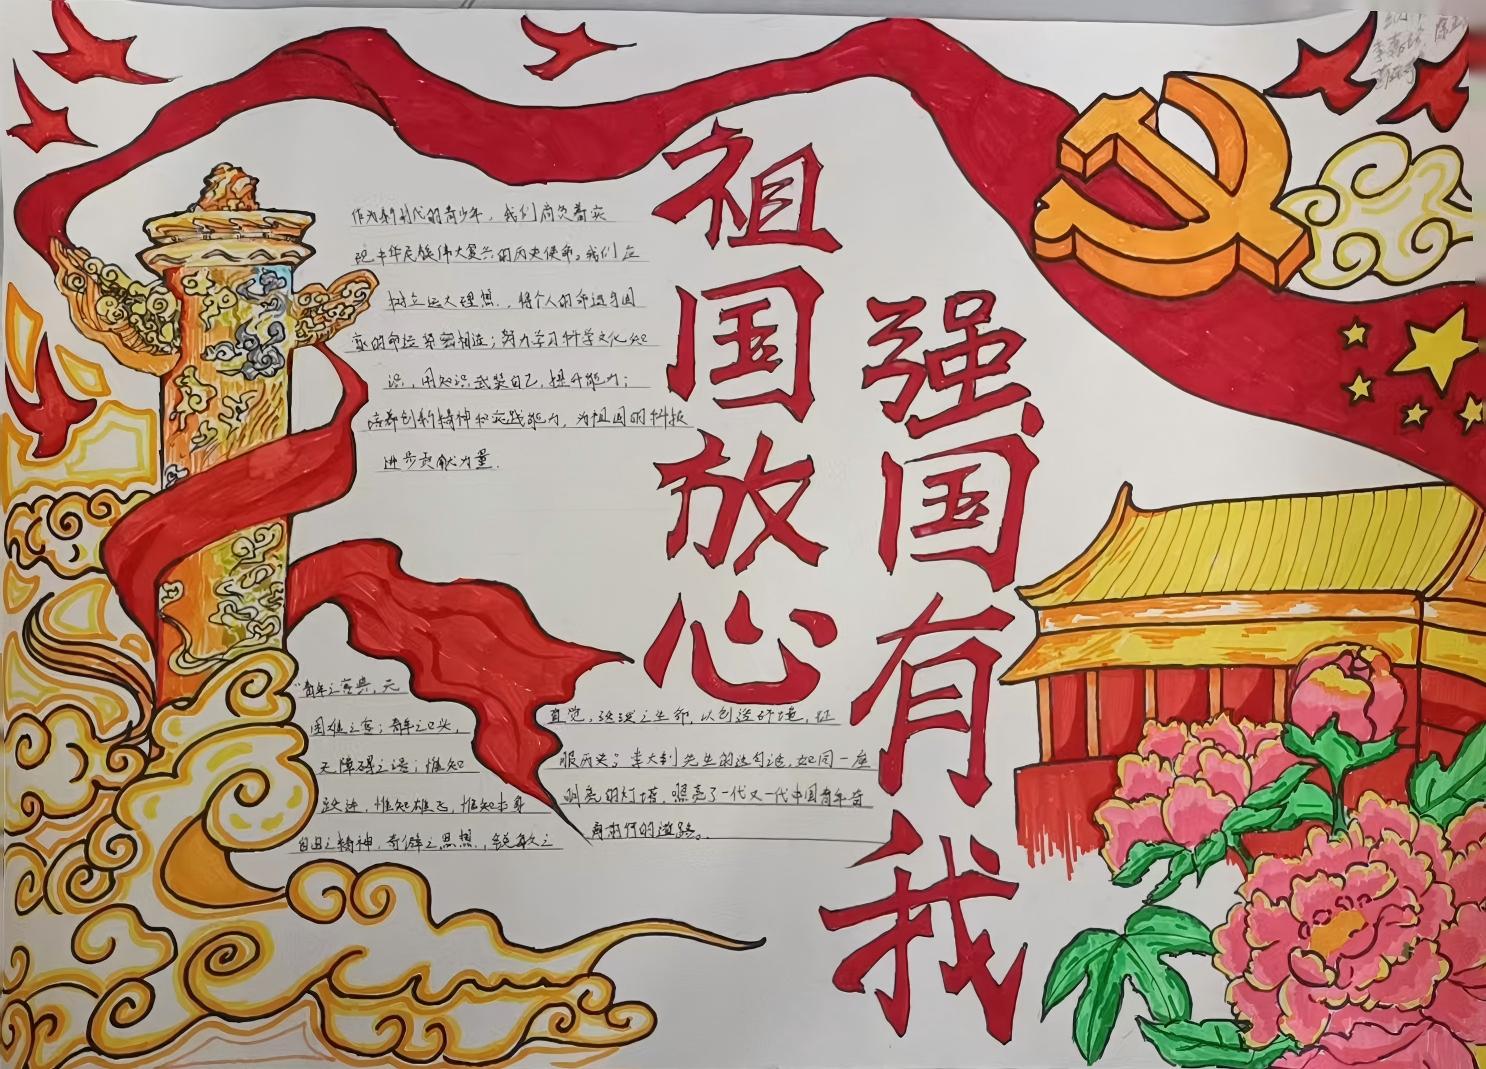 祖国放心
强国有我
作为新时代的青少年，我们肩负着实
现中华民族伟大复兴的历史使命。我们应
树立远大理想，将个人的命运与国
家的命运紧密相连；努力学习科学文化知
识，用知识武装自己，提升能力；
培养创新精神和实践能力，为祖国的科技
进步贡献力量.
"青年之字典，无
困难之字；青年之口头，
无障碍之语；惟知
跃进，惟知雄飞，惟知本其
自由之精神，奇僻之思想，锐敏之
直觉，活泼之生命，以创造环境，征
服历史。李大钊先生的这句话，如同一座
明亮的灯塔，照亮了一代又一代中国青年奋
勇前行的道路。